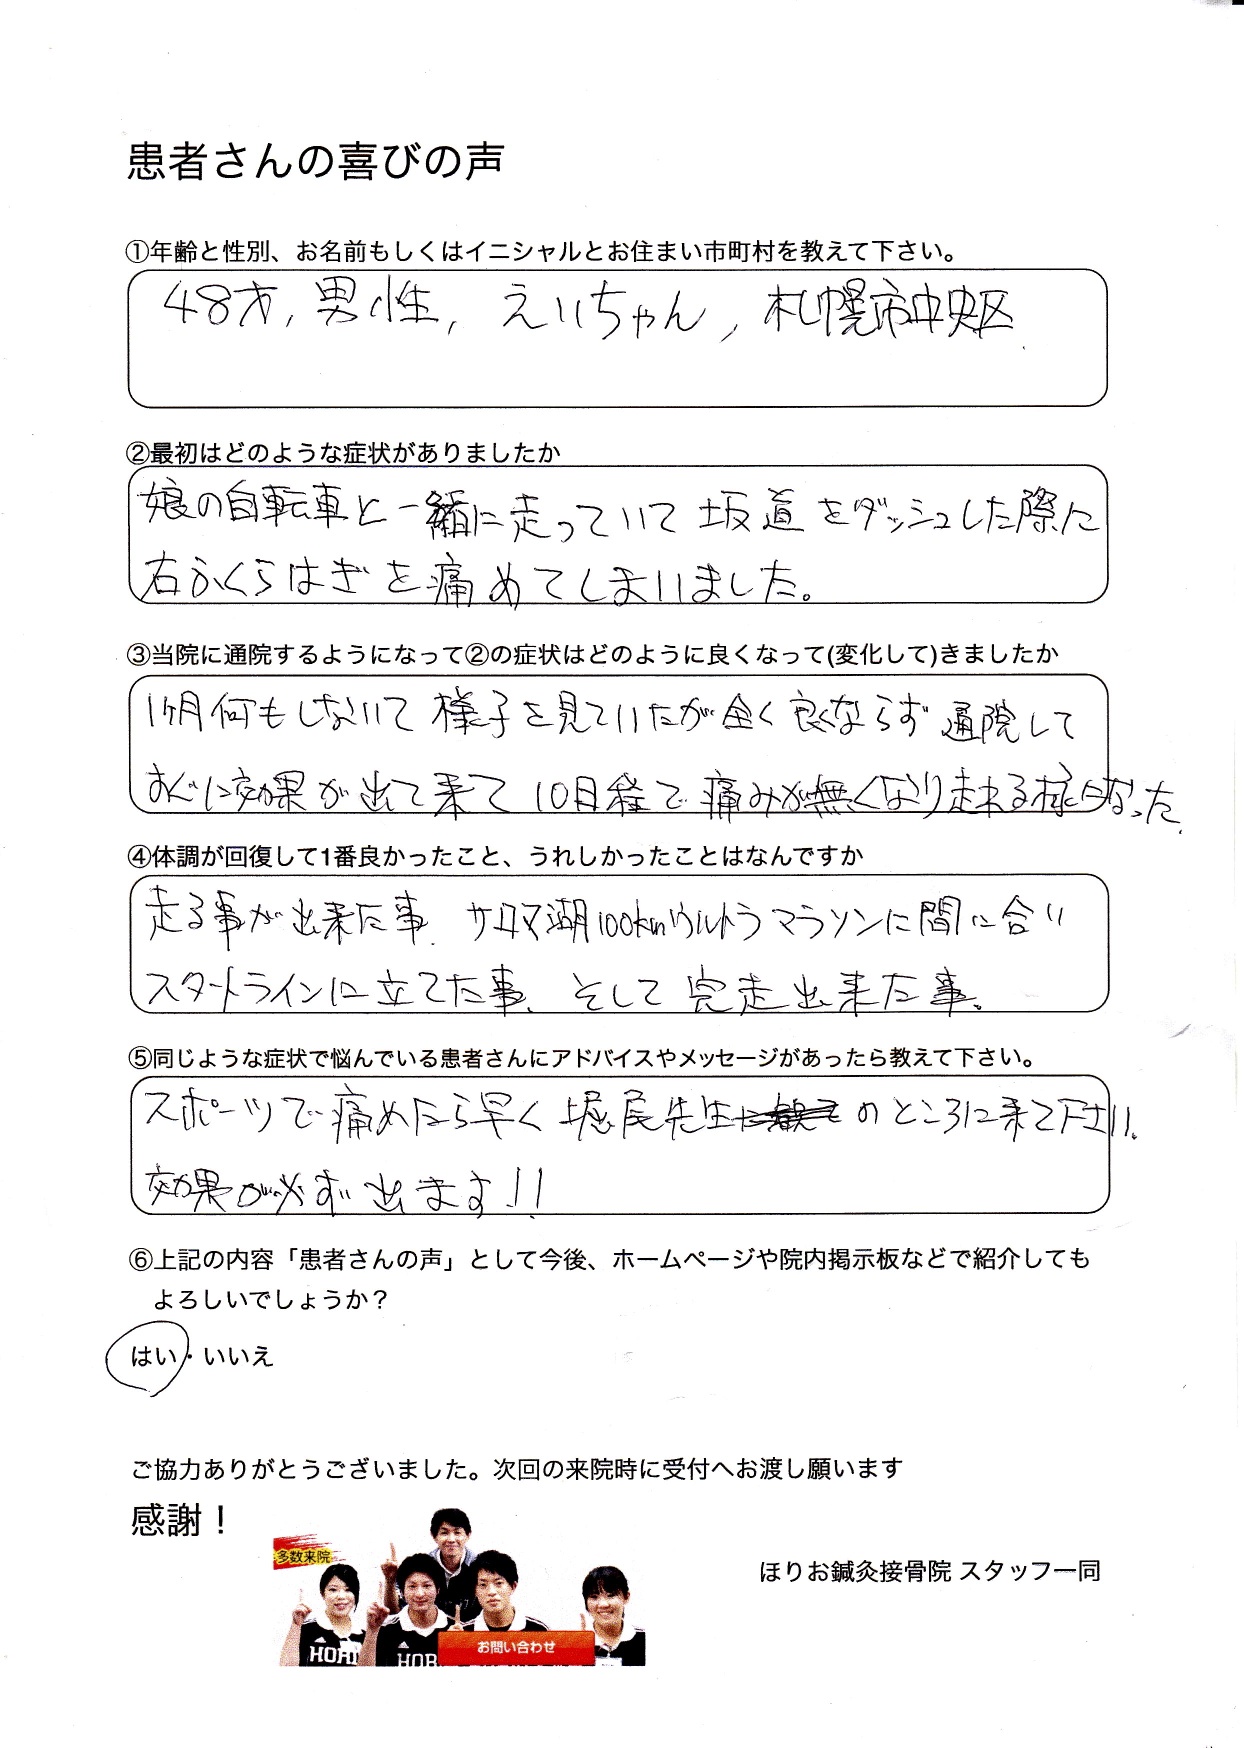 患者さんの喜びの声
①年齢と性別、お名前もしくはイニシャルとお住まい市町村を教えて下さい。
48才, 男性, えいちゃん, 札幌市中央区
②最初はどのような症状がありましたか
娘の自転車と一緒に走っていて坂道をダッシュした際に
右ふくらはぎを痛めてしまいました。
③当院に通院するようになって②の症状はどのように良くなって(変化して)きましたか
1ヶ月何もしないて様子を見ていたが全く良くならず通院して
すぐに効果が出て来て10日程で痛みが無くなり走れる様になった.
④体調が回復して1番良かったこと、うれしかったことはなんですか
走る事が出来た事. サロマ湖100kmウルトラマラソンに間に合い
スタートラインに立てた事、そして完走出来た事。
⑤同じような症状で悩んでいる患者さんにアドバイスやメッセージがあったら教えて下さい。
スポーツで痛めたら早く堀尾先生のところに来て下さい。
効果が必ず出ます!!
⑥上記の内容「患者さんの声」として今後、ホームページや院内掲示板などで紹介しても
よろしいでしょうか?
はい・いいえ
ご協力ありがとうございました。次回の来院時に受付へお渡し願います
感謝!
多数来院
ほりお鍼灸接骨院 スタッフ一同
お問い合わせ
HORI
HOR